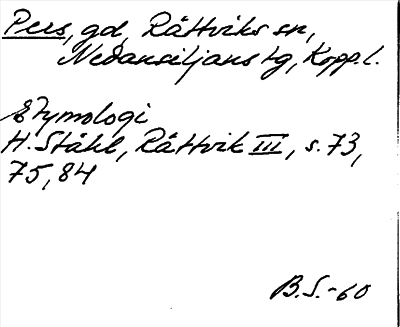 Pers, gd, Rättviks sn,
Nedansiljans tg, Kopp.l.
Etymologi
H. Ståhl, Rättvik III, s. 73,
75, 84
B.S.-60